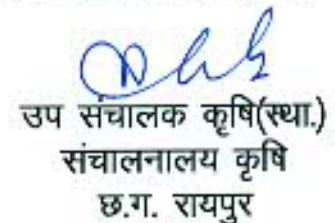 उप संचालक कृषि(स्था.)
संचालनालय कृषि
छ.ग. रायपुर